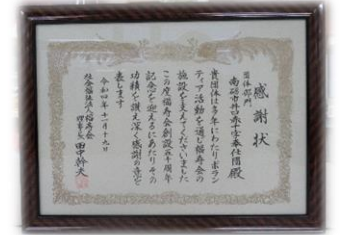 感謝状
団体部門
南砺市井口赤十字奉仕団殿
貴団体は多年にわたりボラン
ティア活動を通じ福寿会の
施設を支えてくださいました
この度福寿会創設五十周年
記念を迎えるにあたりその
功績を讃え深く感謝の意を
表します
令和四年十一月十九日
社会福祉法人福寿会
理事長 田中幹夫